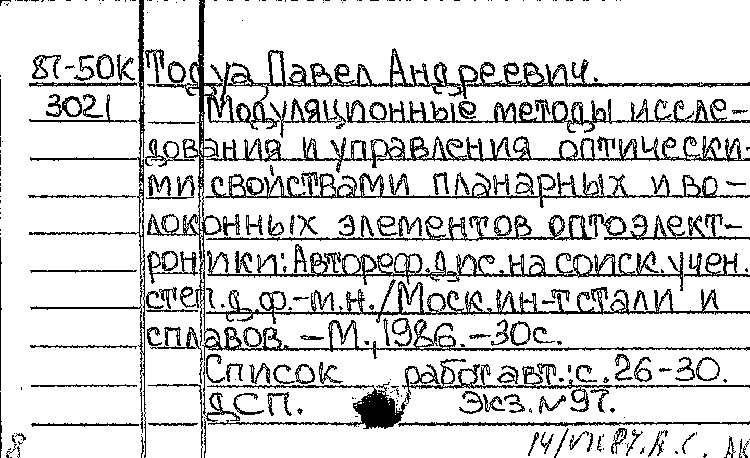 87-50К Тодуа Павел Андреевич.
3021 Модуляционные методы иссле-
дования и управления оптически-
ми свойствами планарных и во-
локонных элементов оптоэлект-
роники: Автореф. дис. на соиск. учен.
степ. д. ф.-м. н. / Моск. ин-т стали и
сплавов. – М., 1986. – 30 с.
Список работ авт.: с. 26-30.
ДСП. Экз. № 97.
8 14/VII 87. А. С. АК